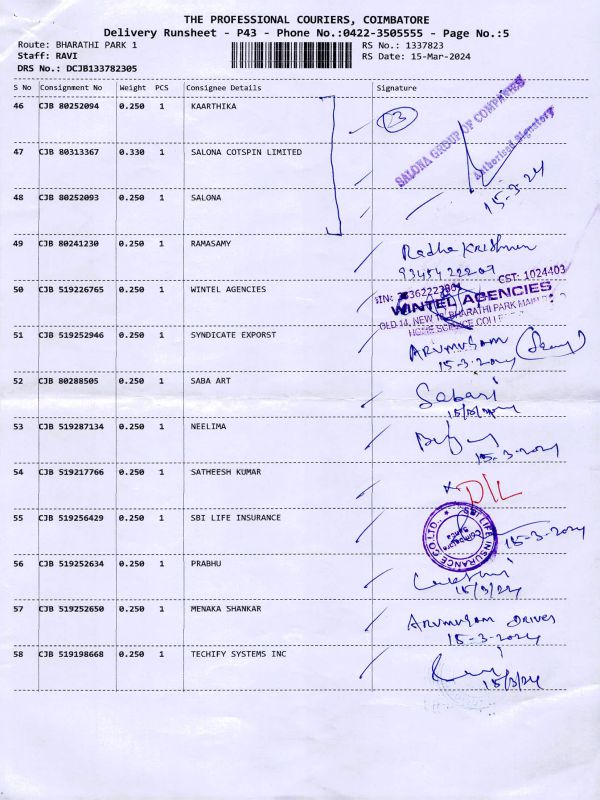 THE PROFESSIONAL COURIERS, COIMBATORE
Delivery Runsheet - P43 - Phone No.:0422-3505555 - Page No.:5
Route: BHARATHI PARK 1 RS No.: 1337823
Staff: RAVI RS Date: 15-Mar-2024
DRS No.: DCJB133782305
S No Consignment No Weight PCS Consignee Details Signature
46 CJB 80252094 0.250 1 KAARTHIKA 3
SALONA GROUP OF COMPANIES
Authorised Signatory
47 CJB 80313367 0.330 1 SALONA COTSPIN LIMITED
15-3-24
48 CJB 80252093 0.250 1 SALONA
49 CJB 80241230 0.250 1 RAMASAMY Radha Krishnan
50 CJB 519226765 0.250 1 WINTEL AGENCIES
CST: 1024403
WINTEL AGENCIES
OLD 14, NEW BHARATHI PARK MAIN
HOME SCIENCE
51 CJB 519252946 0.250 1 SYNDICATE EXPORST Arumugam
15-3-2024
52 CJB 80288505 0.250 1 SABA ART Sabari
53 CJB 519287134 0.250 1 NEELIMA
15-3-2024
54 CJB 519217766 0.250 1 SATHEESH KUMAR D/L
55 CJB 519256429 0.250 1 SBI LIFE INSURANCE
SBI LIFE INSURANCE CO LTD.,
Coimbatore
15-3-2024
56 CJB 519252634 0.250 1 PRABHU
15/3/24
57 CJB 519252650 0.250 1 MENAKA SHANKAR Arumugam Driver
15-3-2024
58 CJB 519198668 0.250 1 TECHIFY SYSTEMS INC
15/3/24